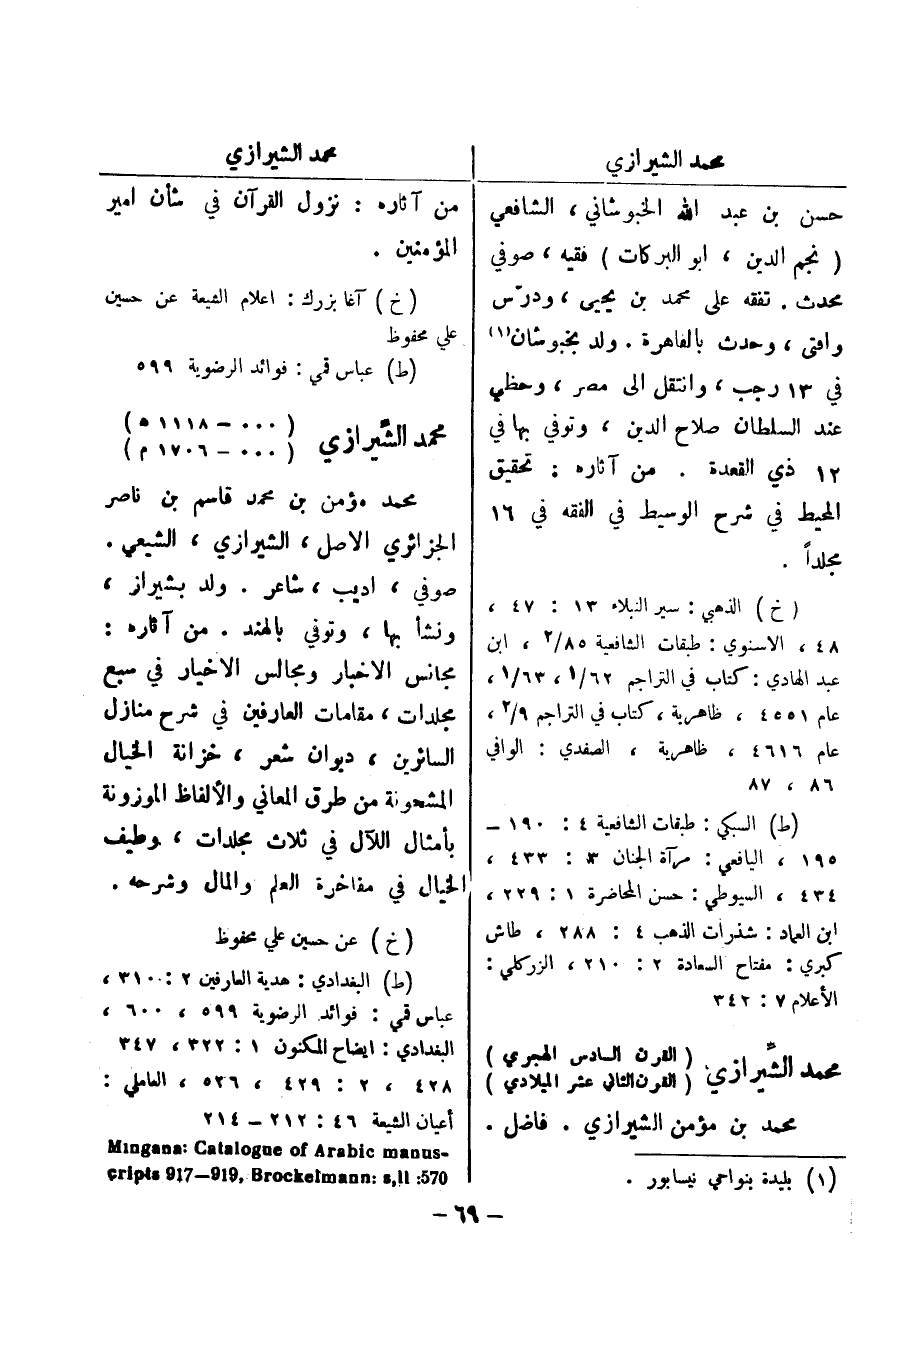 محمد الشيرازي
حسن بن عبد الله الخبوشاني ، الشافعي
( نجم الدين ، ابو البركات ) فقيه ، صوفي
محدث . تفقه على محمد بن يحيى ، ودرّس
وافتى ، وحدث بالقاهرة . ولد بخبوشان(١)
في ١٣ رجب ، وانتقل الى مصر ، وحظي
عند السلطان صلاح الدين ، وتوفي بها في
١٢ ذي القعدة . من آثاره : تحقيق
المحيط في شرح الوسيط في الفقه في ١٦
مجلداً .
( خ ) الذهبي : سير النبلاء ١٣ : ٤٧ ،
٤٨ ، الاسنوي : طبقات الشافعية ٢/٨٥ ، ابن
عبد الهادي : كتاب في التراجم ١/٦٢ ، ١/٦٣ ،
عام ٤٥٥١ ، ظاهرية ، كتاب في التراجم ٢/٩ ،
عام ٤٦١٦ ، ظاهرية ، الصفدي : الوافي
٨٦ ، ٨٧
(ط) السبكي : طبقات الشافعية ٤ : ١٩٠ –
١٩٥ ، اليافعي : مرآة الجنان ٣ : ٤٣٣ ،
٤٣٤ ، السيوطي : حسن المحاضرة ١ : ٢٢٩ ،
ابن العماد : شذرات الذهب ٤ : ٢٨٨ ، طاش
كبري : مفتاح السعادة ٢ : ٢١٠ ، الزركلي :
الأعلام ٧ : ٣٤٢
محمد الشّيرازي ( القرن السادس الهجري )
( القرن الثاني عشر الميلادي )
محمد بن مؤمن الشيرازي . فاضل .
(١) بليدة بنواحي نيسابور .
محمد الشيرازي
من آثاره : نزول القرآن في شأن امير
المؤمنين .
( خ ) آغا بزرك : اعلام الشيعة عن حسين
علي محفوظ
(ط) عباس قمي : فوائد الرضوية ٥٩٩
محمد الشّيرازي ( ٠٠٠ – ١١١٨ ه )
( ٠٠٠ – ١٧٠٦ م )
محمد مؤمن بن محمد قاسم بن ناصر
الجزائري الاصل ، الشيرازي ، الشيعي .
صوفي ، اديب ، شاعر . ولد بشيراز ،
ونشأ بها ، وتوفي بالهند . من آثاره :
مجانس الاخبار ومجالس الاخيار في سبع
مجلدات ، مقامات العارفين في شرح منازل
السائرين ، ديوان شعر ، خزانة الخيال
المشحونة من طرق المعاني والألفاظ الموزونة
بأمثال اللآل في ثلاث مجلدات ، وطيف
الخيال في مفاخرة العلم والمال وشرحه .
( خ ) عن حسين علي محفوظ
(ط) البغدادي : هدية العارفين ٢ : ٣١٠ ،
عباس قمي : فوائد الرضوية ٥٩٩ ، ٦٠٠ ،
البغدادي : ايضاح المكنون ١ : ٣٢٢ ، ٣٤٧
٤٢٨ ، ٢ : ٤٢٩ ، ٥٢٦ ، العاملي :
أعيان الشيعة ٤٦ : ٢١٢ – ٢١٤
Mingana: Catalogue of Arabic manus-
cripts 917–919, Brockelmann: s,II :570
– ٦٩ –